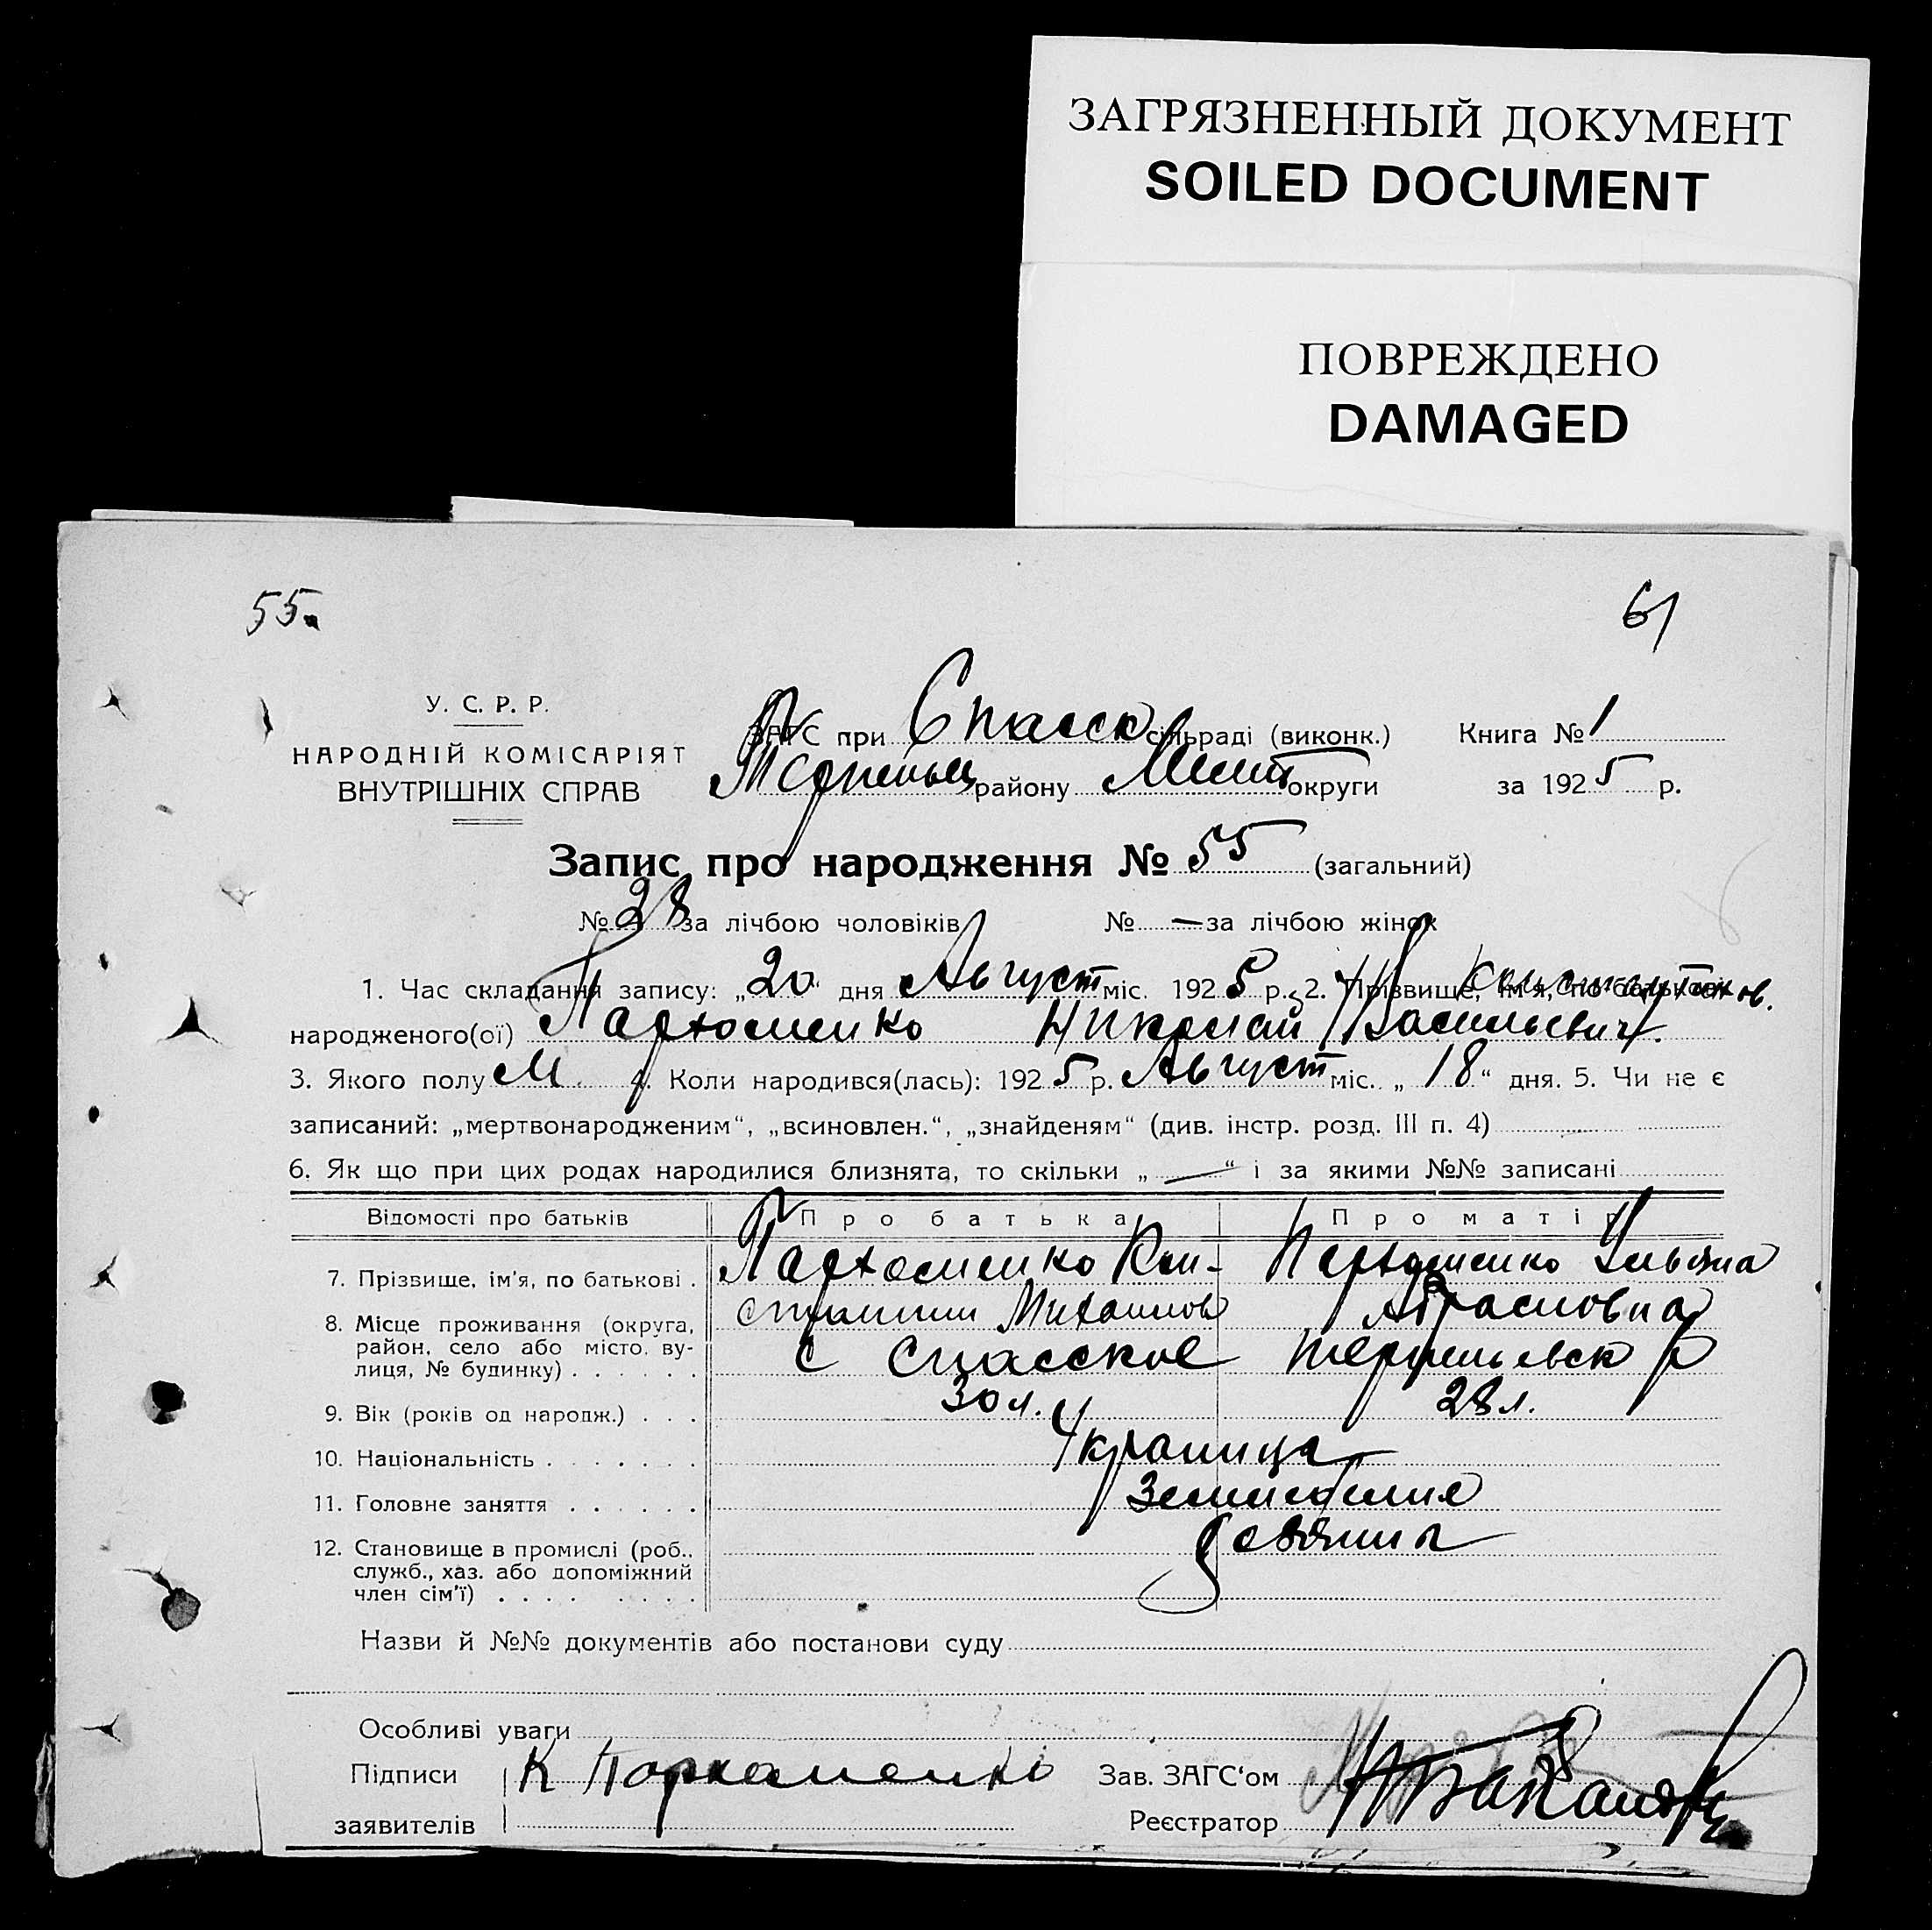 ЗАГРЯЗНЕННЫЙ ДОКУМЕНТ
SOILED DOCUMENT
ПОВРЕЖДЕНО
DAMAGED
55.
61
У. С. Р. Р.
НАРОДНІЙ КОМІСАРІЯТ
ВНУТРІШНІХ СПРАВ
ЗАГС при Спасск сільраді (виконк.)
району Мелит округи
Книга № 1
за 1925 р.
Запис про народження № 55 (загальний)
№ 28 за лічбою чоловіків № — за лічбою жінок
1. Час складання запису: „20" дня Август міс. 1925 р. 2. Прізвище, ім'я, по батькові
Константинов.
народженого(ої) Пархоменко Николай Васильевич.
3. Якого полу М. 4. Коли народився(лась): 1925 р. Август міс. „18" дня. 5. Чи не є
записаний: „мертвонародженим", „всиновлен.", „знайденям" (див. інстр. розд. III п. 4)
6. Як що при цих родах народилися близнята, то скільки „—" і за якими №№ записані
Відомості про батьків Про батька Про матір
7. Прізвище, ім'я, по батькові . Пархоменко Кон- Пархоменко Ульяна
стантин Михайлов Абрамовна
8. Місце проживання (округа,
район, село або місто, ву-
лиця, № будинку) . . . . . . с Спасское р
9. Вік (років од народж.) . . . 30 л. 28 л.
10. Національність . . . . . . . Украинцы
11. Головне заняття . . . . . . Земледелие
12. Становище в промислі (роб.,
служб., хаз. або допоміжний
член сім'ї) . . . . . . . .
Назви й №№ документів або постанови суду
Особливі уваги
Підписи К Пархаменко Зав. ЗАГС'ом
заявителів Реєстратор